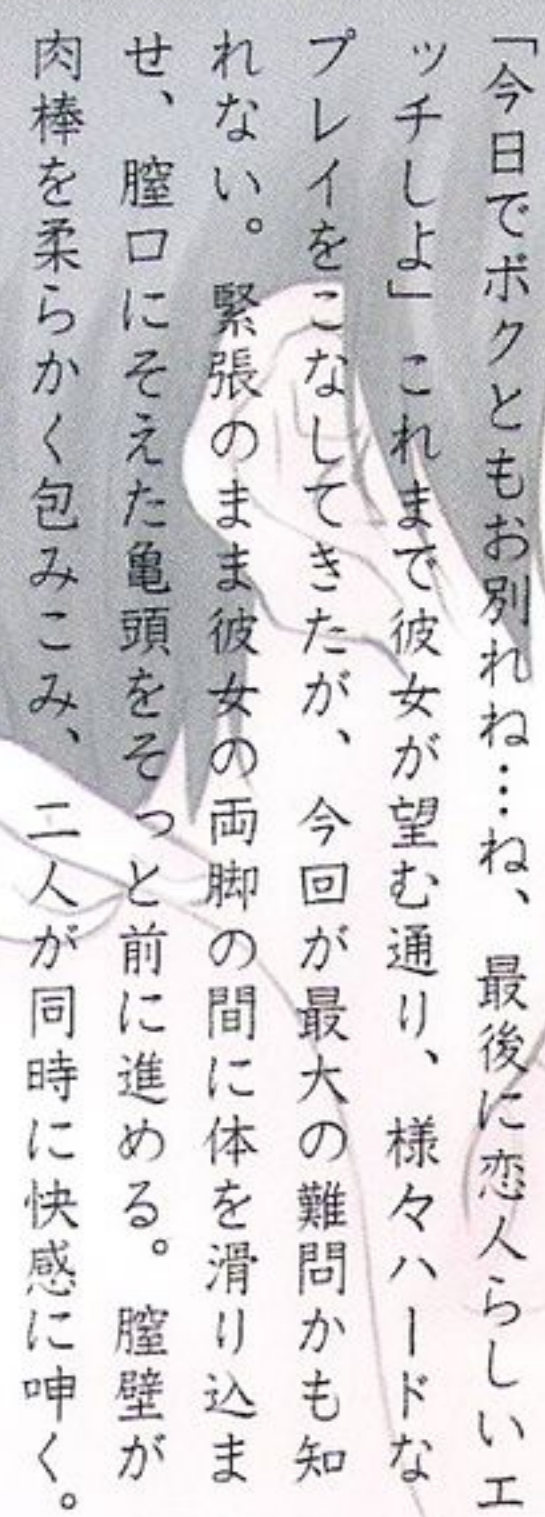 「今日でボクともお別れね…ね、最後に恋人らしいエ
ッチしよ」これまで彼女が望む通り、様々ハードな
プレイをこなしてきたが、今回が最大の難問かも知
れない。緊張のまま彼女の両脚の間に体を滑り込ま
せ、膣口にそえた亀頭をそっと前に進める。膣壁が
肉棒を柔らかく包みこみ、二人が同時に快感に呻く。